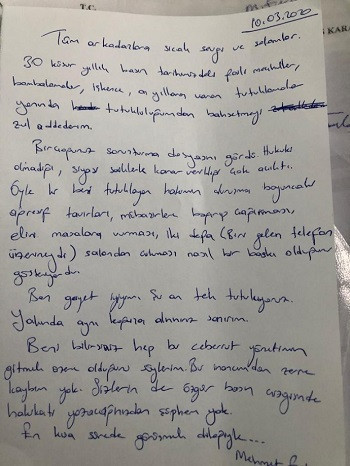 T.C.
10.03.2020
Tüm arkadaşlara sıcak sevgi ve selamlar.
30 küsur yıllık basın tarihimizdeki faili meçhuller,
bombalamalar, işkence, ağır yılları varan tutuklamalar
yanında tutukluluğumdan bahsetmeyi
zul addederim.
Birçoğunuz soruşturma dosyasını gördü. Hukuki
olmadığı, siyasi saiklerle karar verildiği çok açıktı.
Öyle ki bizi tutuklayan hakimin duruşma boyunca
agresif tavırları, mübaşirlere bağırıp çağırması,
elini masalara vurması, iki defa (biri gelen telefon
üzerineydi) salondan çıkması nasıl bir baskı olduğunu
gösteriyordu.
Ben gayet iyiyim. Şu an tek tutuluyorum.
Yakında aynı koğuşa alınırız sanırım.
Beni bilirsiniz hep bu ceberut yönetimin
gitmek üzere olduğunu söylerim. Bu inancımdan zerre
kaybım yok. Sizlerin de özgür basın çizgisinde
hakikati yazacağınızdan şüphem yok.
En kısa sürede görüşmek dileğiyle...
Mehmet